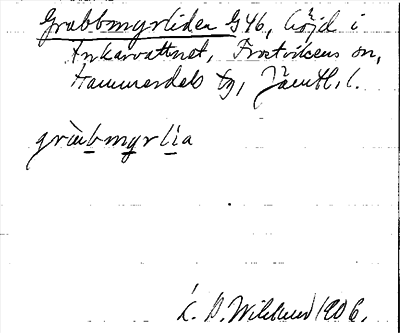 Grabbmyrliden G46, höjd i
Ankarvattnet, Frostvikens sn,
Hammerdals tg, Jämtl. l.
gràbmyrlìa
K. B. Wiklund 1906.